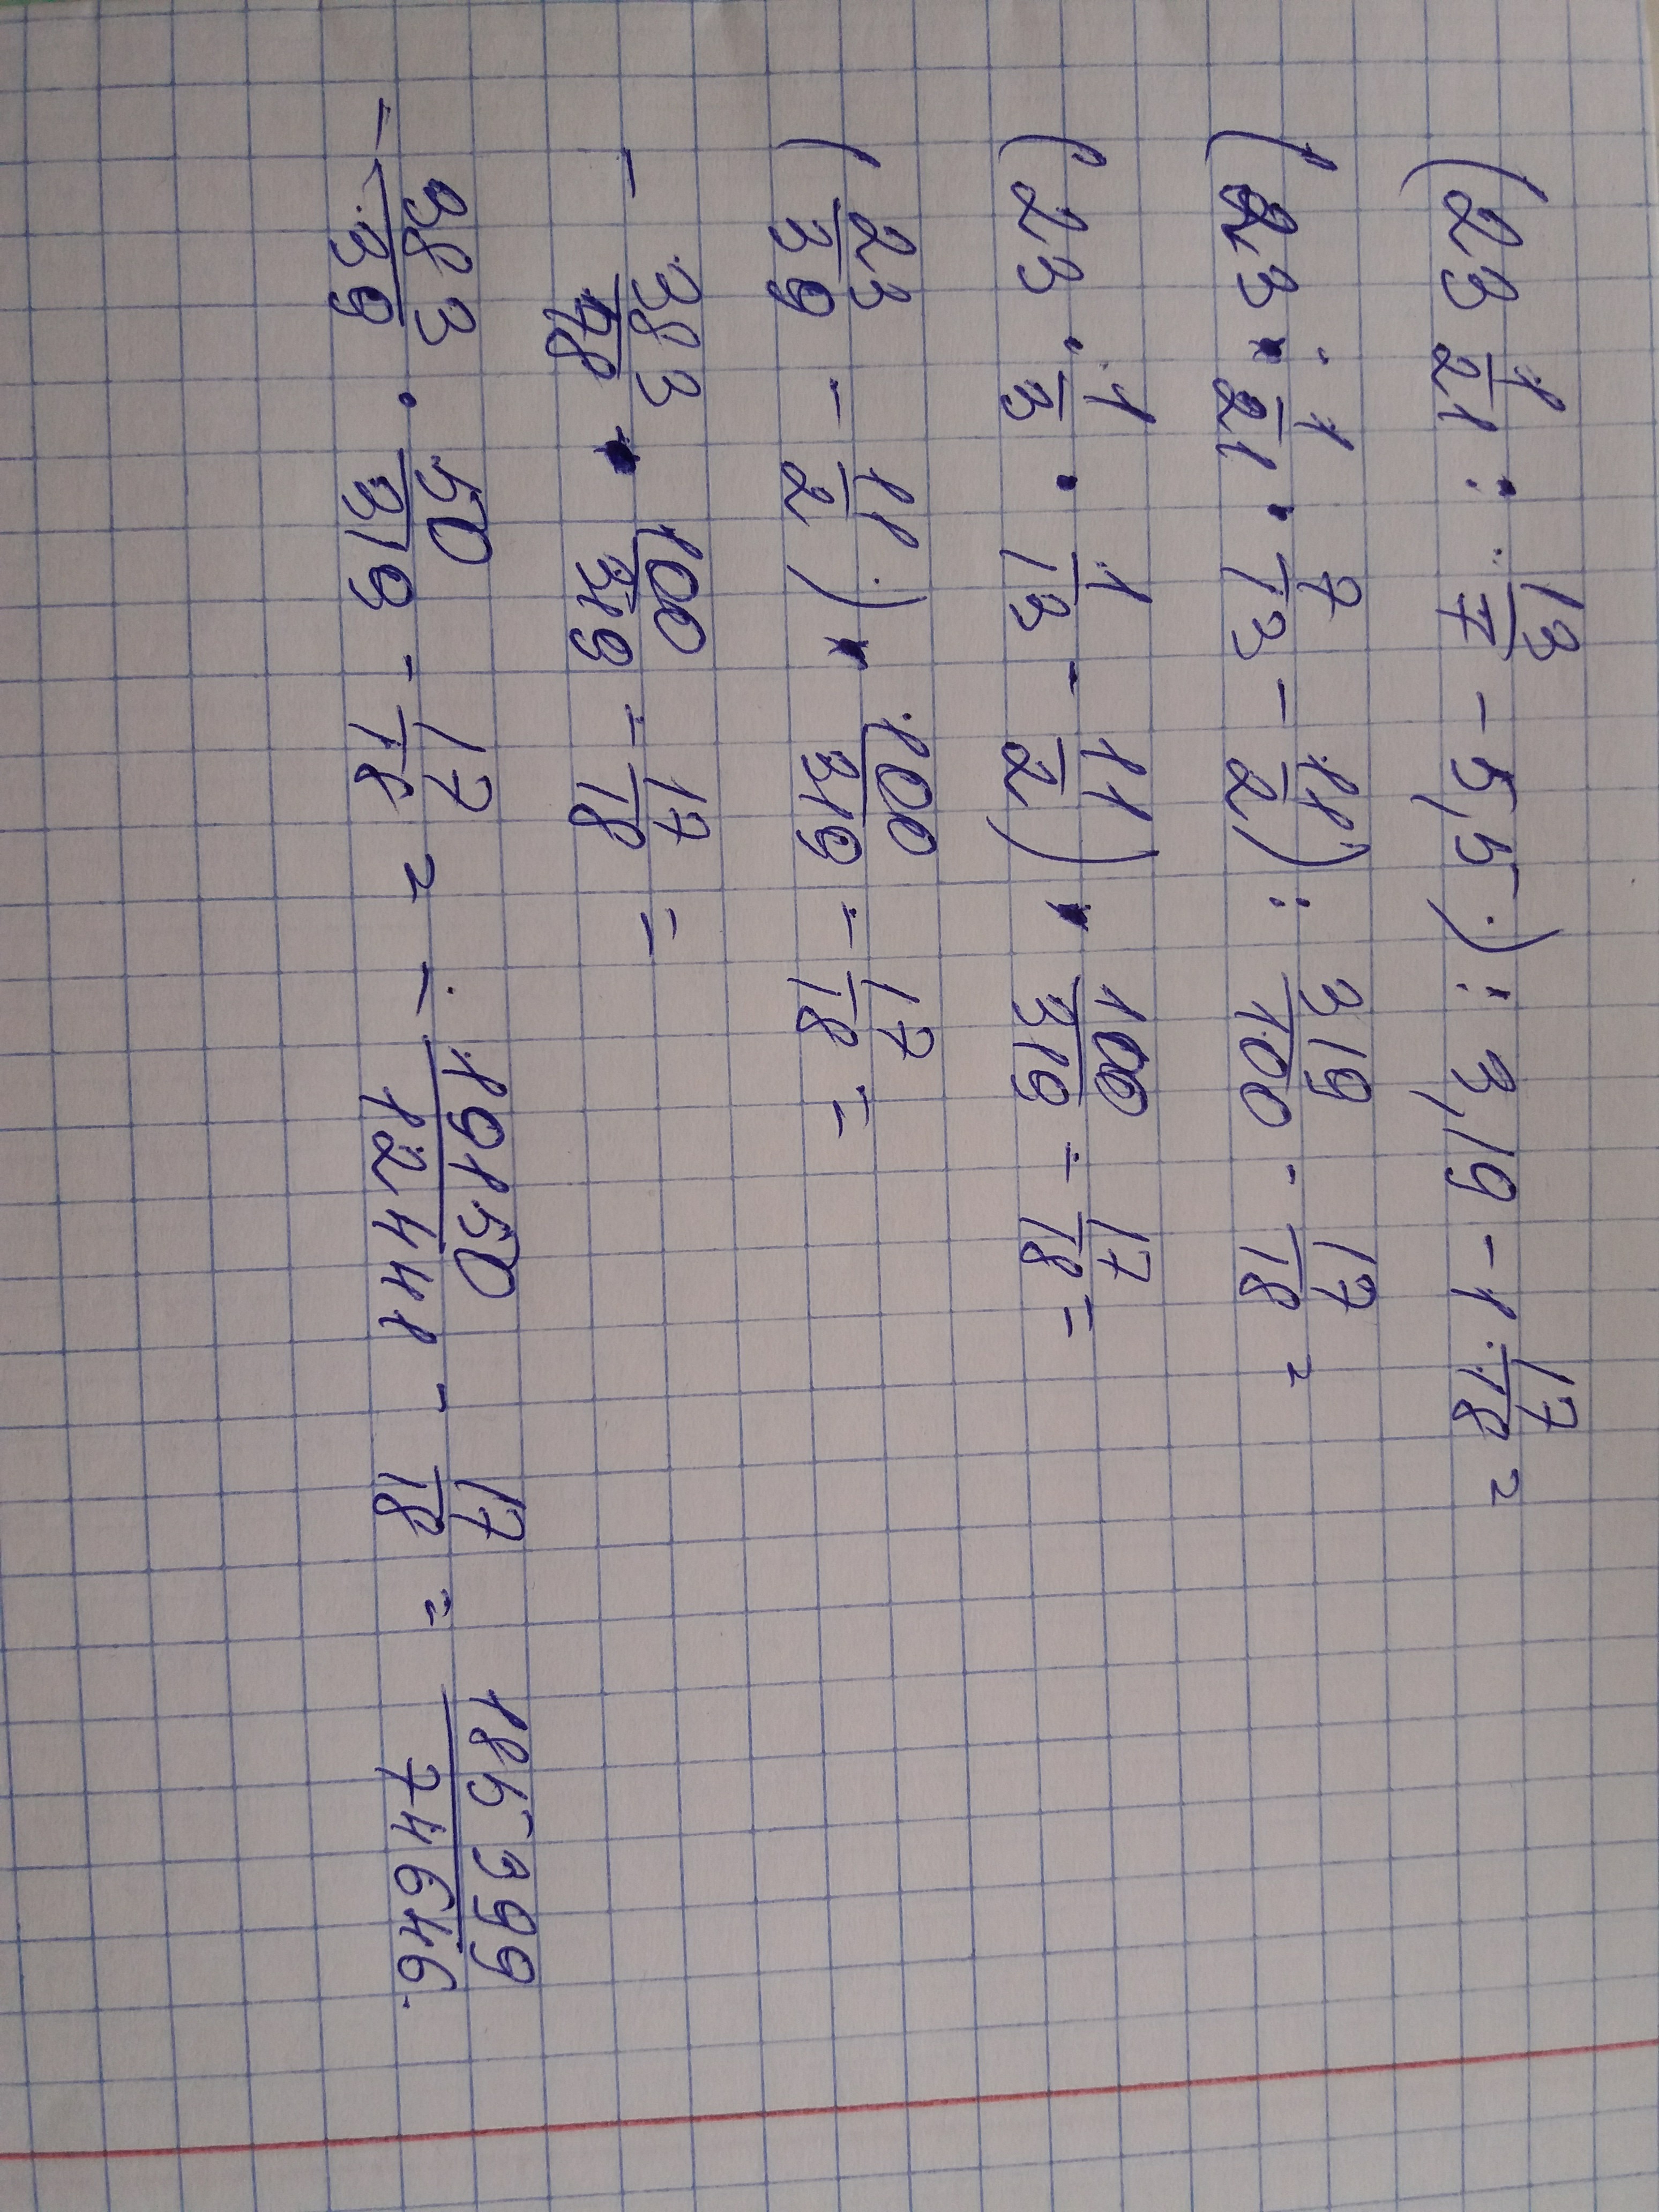 (23 1/21 : 13/7 - 5,5) : 3,19 - 1 17/18 =
(23 · 1/21 · 7/13 - 11/2) : 319/100 - 17/18 =
(23 · 1/3 · 1/13 - 11/2) · 100/319 - 17/18 =
(23/39 - 11/2) · 100/319 - 17/18 =
- 383/78 · 100/319 - 17/18 =
- 383/39 · 50/319 - 17/18 = - 19150/12441 - 17/18 = 185399/74646.